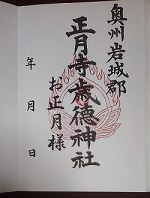 奥州岩城郡
正月寺歳徳神社
お正月様
年　月　日